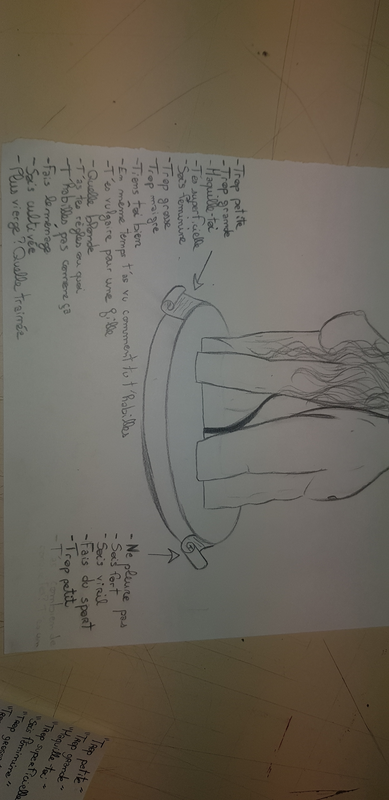 - Trop petite
- Trop grande
- Maquille-toi
- T'es superficielle
- Sois féminine.
- Trop grosse
Trop maigre
- Tiens toi bien
- En même temps t'as vu comment tu t'habilles
- T'es vulgaire pour une fille
- Quelle blonde
- T'as tes règles ou quoi
- T'habilles pas comme ça
- Fais le ménage
- Sois cultivée
- Plus vierge? Quelle traînée
- Ne pleure pas
- Sois fort
- Sois viril
- Fais du sport
- Trop petit
"Trop petite"
"Trop grande"
"Maquille-toi"
"Trop superficielle
"Sois féminine"
"Trop grosse